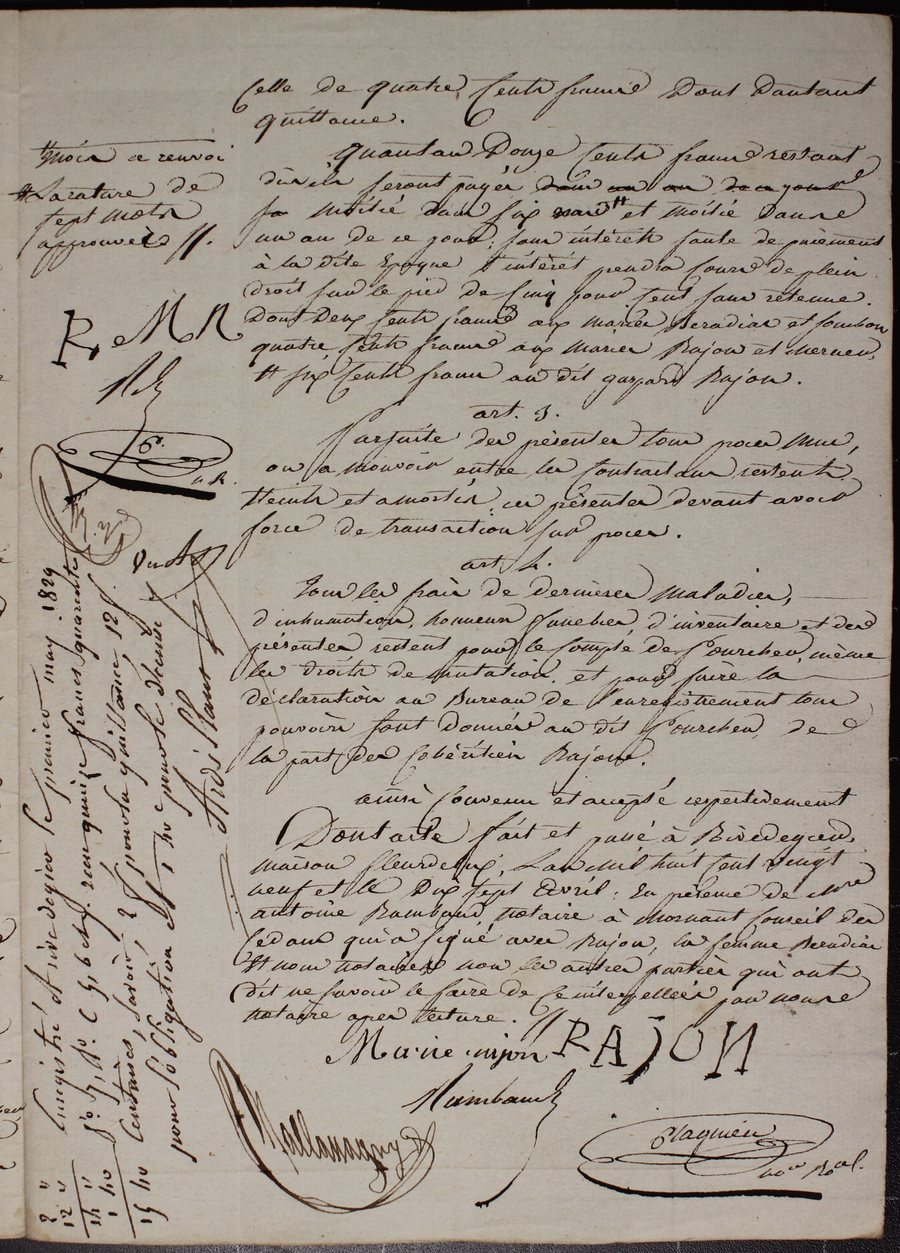 Celle de quatre Cents francs Dont Dautant
quittance.
Quant aux Douze Cents francs restant
dûs ils seront payés dans un an de ce jour
moitié dans six et moitié dans
un an de ce jour, sans intérêts faute de paiement
à la dite Epoque l'intérêt prendra cours de plein
droit sur le pied de cinq pour cent sans retenue.
Dont Deux Cents francs aux mariés Beradier et Combon
quatre Cents francs aux mariés Rajon et
et six Cents francs au dit gaspard Rajon.
art. 3.
Par suite des présentes tous procès mus,
ou à mouvoir entre les contractans restent
éteints et amortis, ces présentes devant avoir
force de transaction sur procès.
art. 4.
Tous les frais de dernieres maladies,
d'inhumation, honneurs funebres, d'inventaire et des
présentes restent pour le compte de Fourchon, même
les droits de mutation, et pour faire la
déclaration au Bureau de l'enregistrement tous
pouvoirs sont donnés au dit Fourchon, de
la part des cohéritiers Rajon.
ainsi convenu et accepté respectivement
Dont acte fait et passé à Rivedegier,
maison fleurdelix, L'an mil huit cent vingt
neuf et le Dix sept avril: En présence de Mre
antoine Rambaud, notaire à Mornant Conseil des
Cédans qui a signé avec Rajon, la femme Beradier
et nous notaires non les autres parties qui ont
dit ne savoir le faire de ce interpellées par nous
notaire après lecture.
Marie rajon RAJON
Rambaud
Plagnieu
nore Roal.
mois ce renvoi
La rature de
sept mots
approuvée
R. M R
Enregistré à rivedegier le premier may 1829
fo 71, Ro C 5, 6 et 7. reçu quinze francs quarante
centimes, savoir: 2 f pour la quittance, 12 f
pour l'obligation et 1 40 c pour le dixième
2 "
12 "
14 "
1 40
15 40